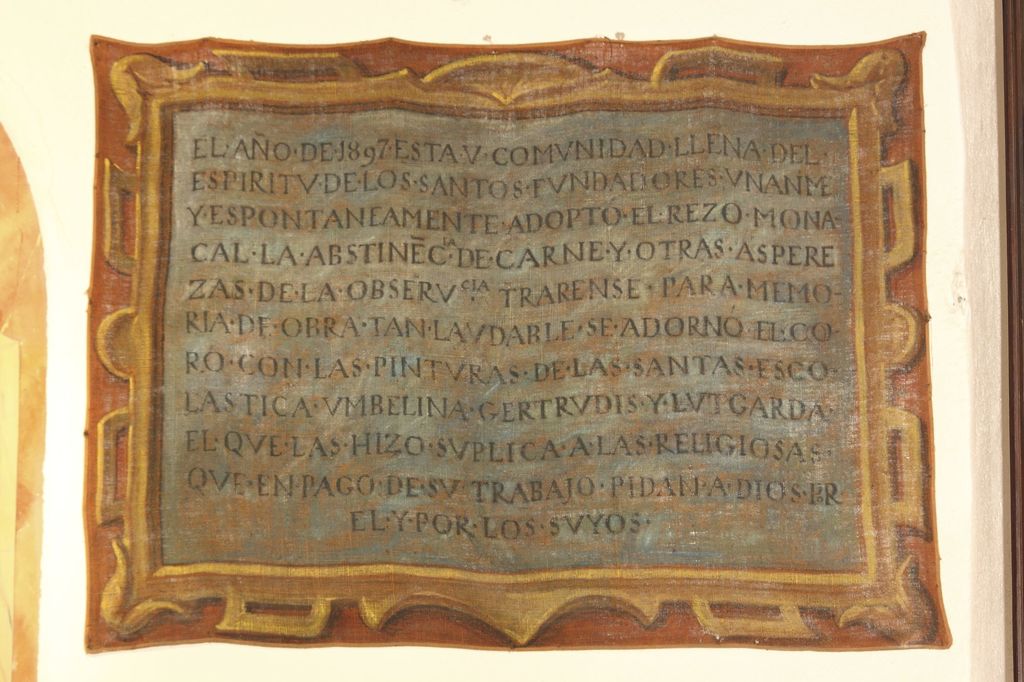 EL·AÑO·DE·1897·ESTA·V·COMVNIDAD·LLENA·DEL·
ESPIRITV·DE·LOS·SANTOS·FVNDADORES·VNANME
Y·ESPONTANEAMENTE·ADOPTÓ·EL·REZO·MONA-
CAL·LA·ABSTINĒC.ᴵᴬ DE·CARNE·Y·OTRAS·ASPERE
ZAS·DE·LA·OBSERVᶜᴵᴬ TRARENSE·PARA·MEMO-
RIA·DE·OBRA·TAN·LAVDABLE·SE·ADORNÓ·EL·CO-
RO·CON·LAS·PINTVRAS·DE·LAS·SANTAS·ESCO-
LASTICA·VMBELINA·GERTRVDIS·Y·LVTGARDA·
EL·QVE·LAS·HIZO·SVPLICA·A·LAS·RELIGIOSAS·
QVE·EN·PAGO·DE·SV·TRABAJO·PIDAN·A·DIOS·PR
EL·Y·POR·LOS·SVYOS·